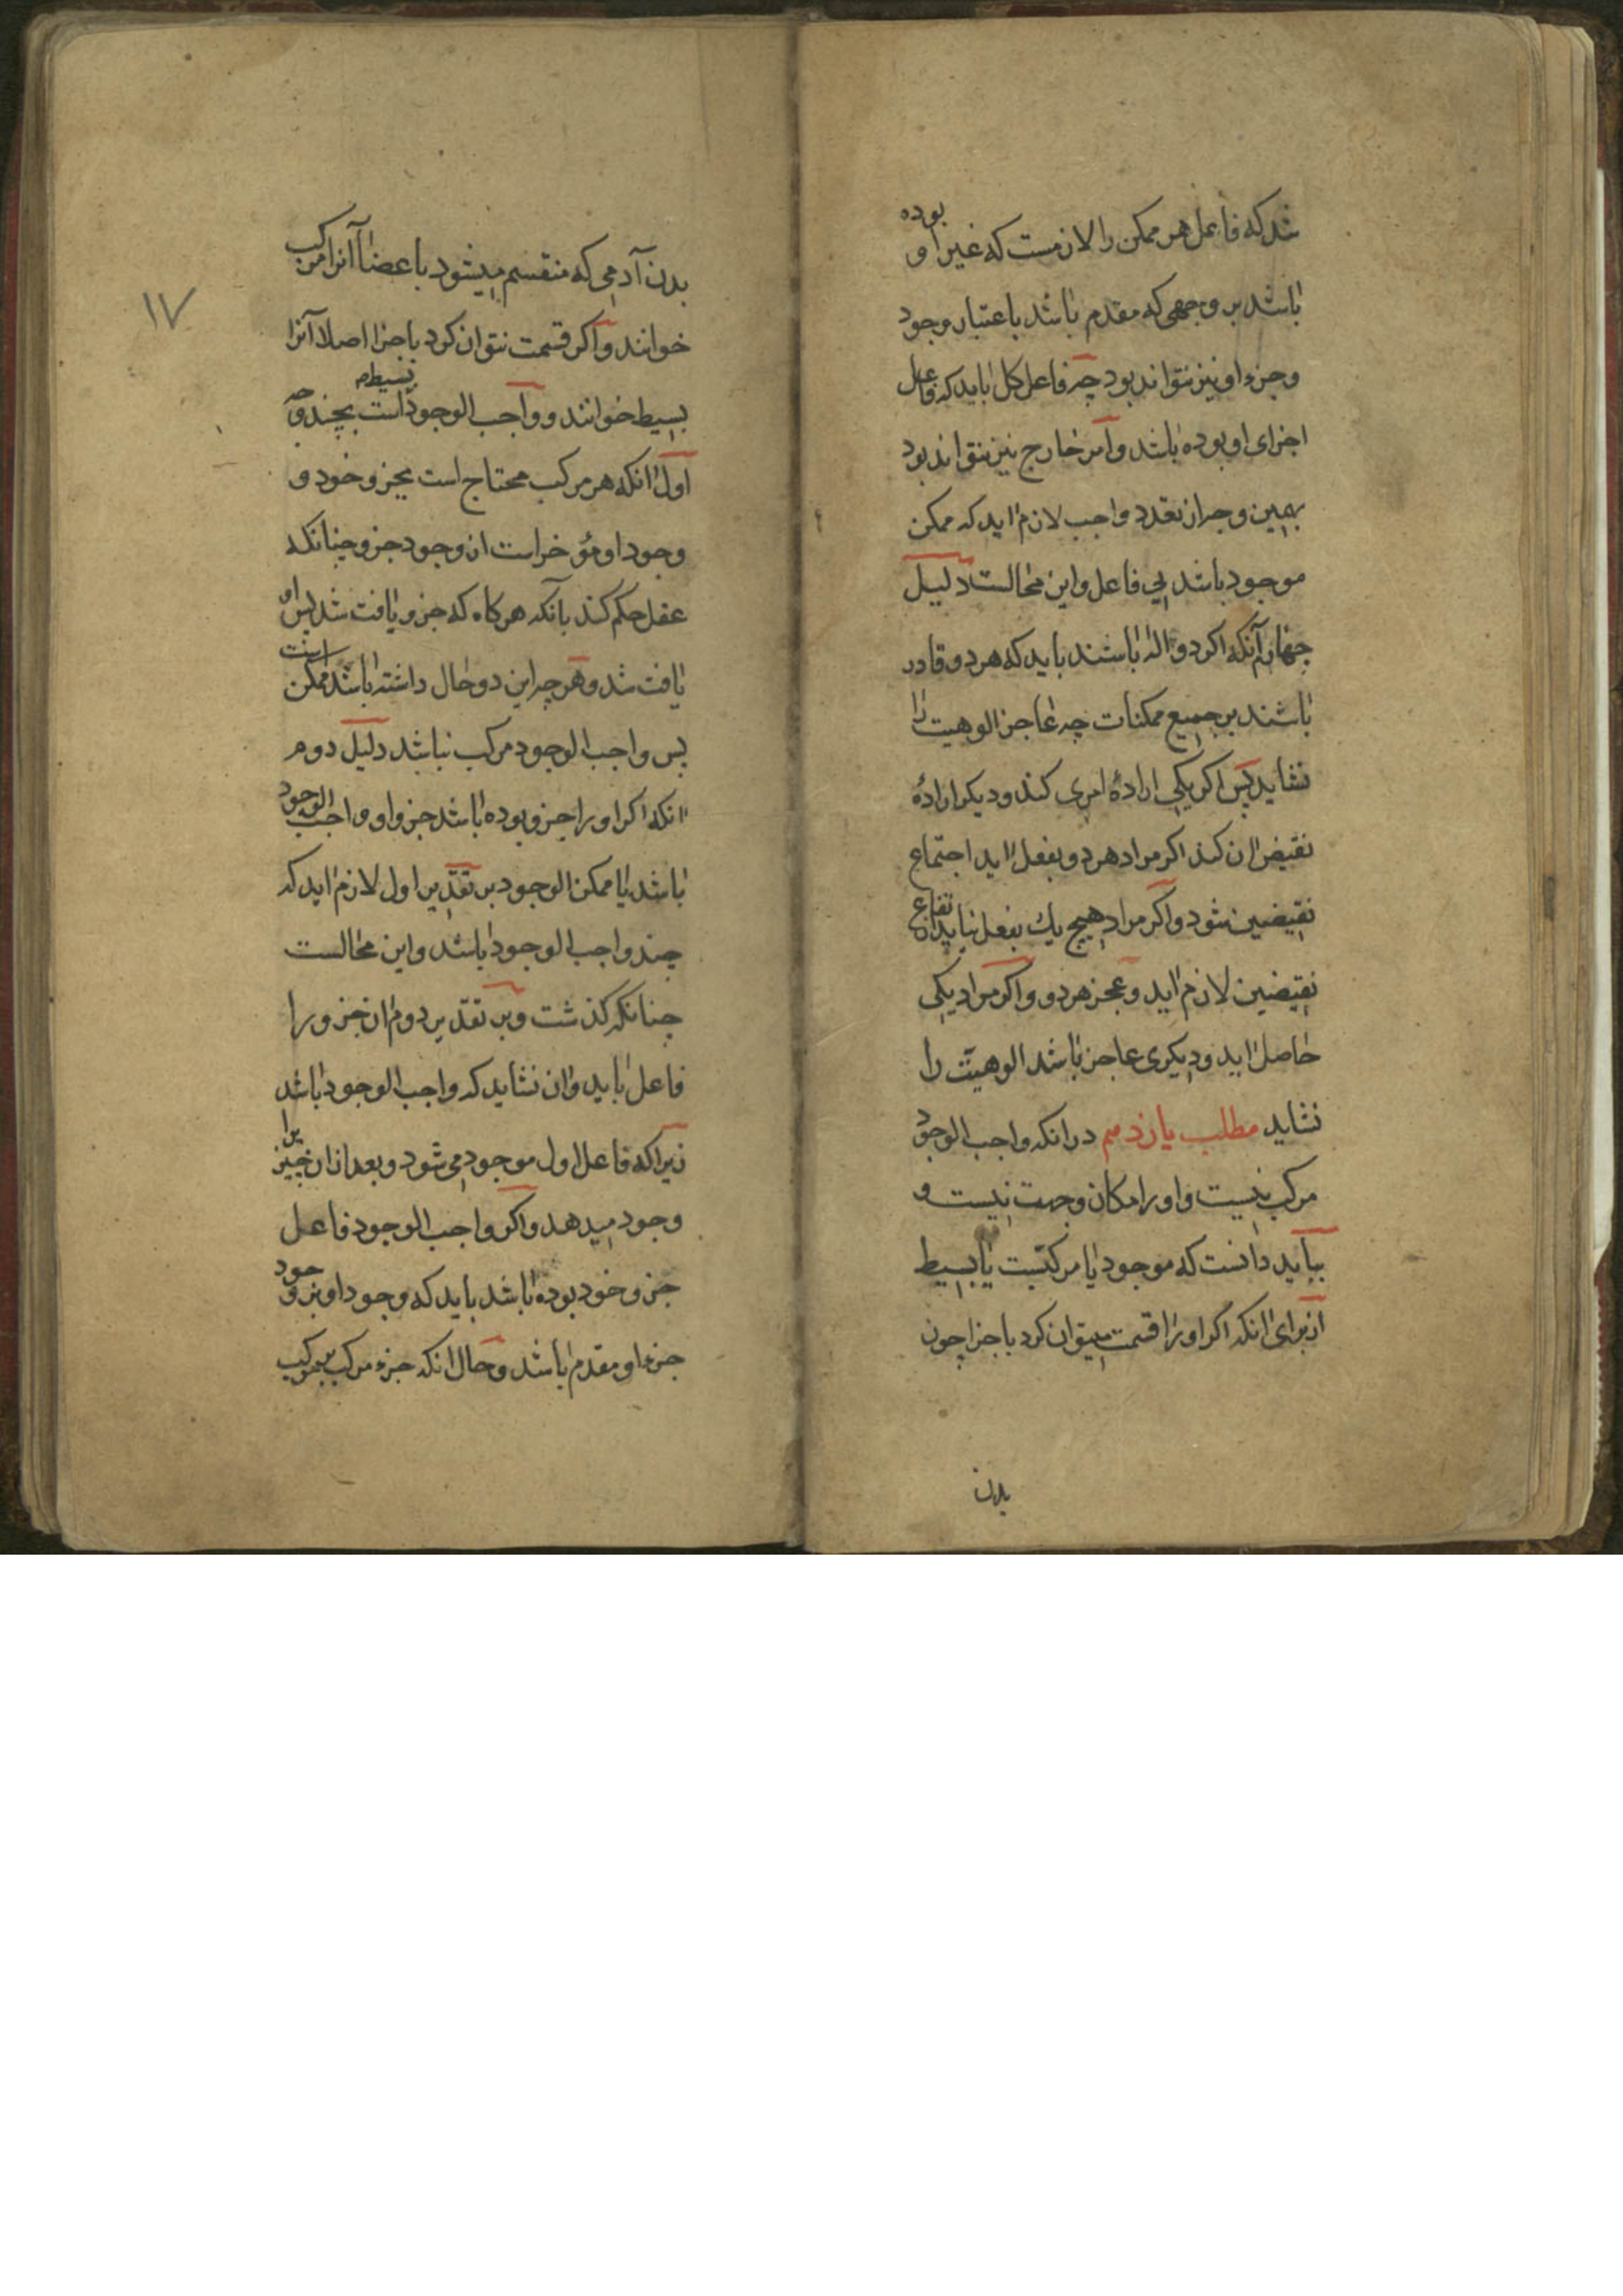 شد که فاعل هر ممکن را لازمست که غیر او بوده
باشد بر وجهی که مقدم باشد باعتبار وجود
و جزء او نیز نتواند بود چه فاعل کل باید که فاعل
اجزای او بوده باشد و امر خارج نیز نتواند بود
بهمین وجه از تعدد واجب لازم اید که ممکن
موجود باشد بی فاعل و این محالست دلیل
چهارم آنکه اکر دو اله باشند باید که هر دو قادر
باشند بر جمیع ممکنات چه عاجز الوهیت را
نشاید پس اکر یکی ارادهٔ امری کند و دیکر ارادهٔ
نقیض ان کند اکر مراد هر دو بفعل اید اجتماع
نقیضین شود و اکر مراد هیچ یک بفعل نیاید ارتفاع
نقیضین لازم اید و عجز هر دو و اکر مراد یکی
حاصل اید و دیکری عاجز باشد الوهیّت را
نشاید مطلب یازدهم در انکه واجب الوجود
مرکب نیست و او را مکان و جهت نیست و
بباید دانست که موجود یا مرکبّست یا بسیط
از برای انکه اکر او را قسمت میتوان کرد باجزا چون
بدن
۱۷
بدن آدمی که منقسم میشود باعضا آنرا مرکب
خوانند و اکر قسمت نتوان کرد باجزا اصلا آنرا
بسیط خوانند و واجب الوجود بسیط است بچند وجه
اول انکه هر مرکب محتاج است بجزو خود و
وجود او مؤخر است از وجود جزو چنانکه
عقل حکم کند بآنکه هر کاه که جزو یافت شد پس او
یافت شد و هر چه این دو حال داشته باشد ممکن است
پس واجب الوجود مرکب نباشد دلیل دوم
انکه اکر او را جزو بوده باشد جزو او واجب الوجود
باشد یا ممکن الوجود بر تقدیر اول لازم اید که
چند واجب الوجود باشد و این محالست
چنانکه کذشت و بر تقدیر دوم ان جزو را
فاعل باید و ان نشاید که واجب الوجود باشد
زیرا که فاعل اول موجود می شود و بعد از ان چیز را
وجود میدهد و اکر واجب الوجود فاعل
جزو خود بوده باشد باید که وجود او بر وجود
جزء او مقدم باشد و حال انکه جزء مرکب بر مرکب